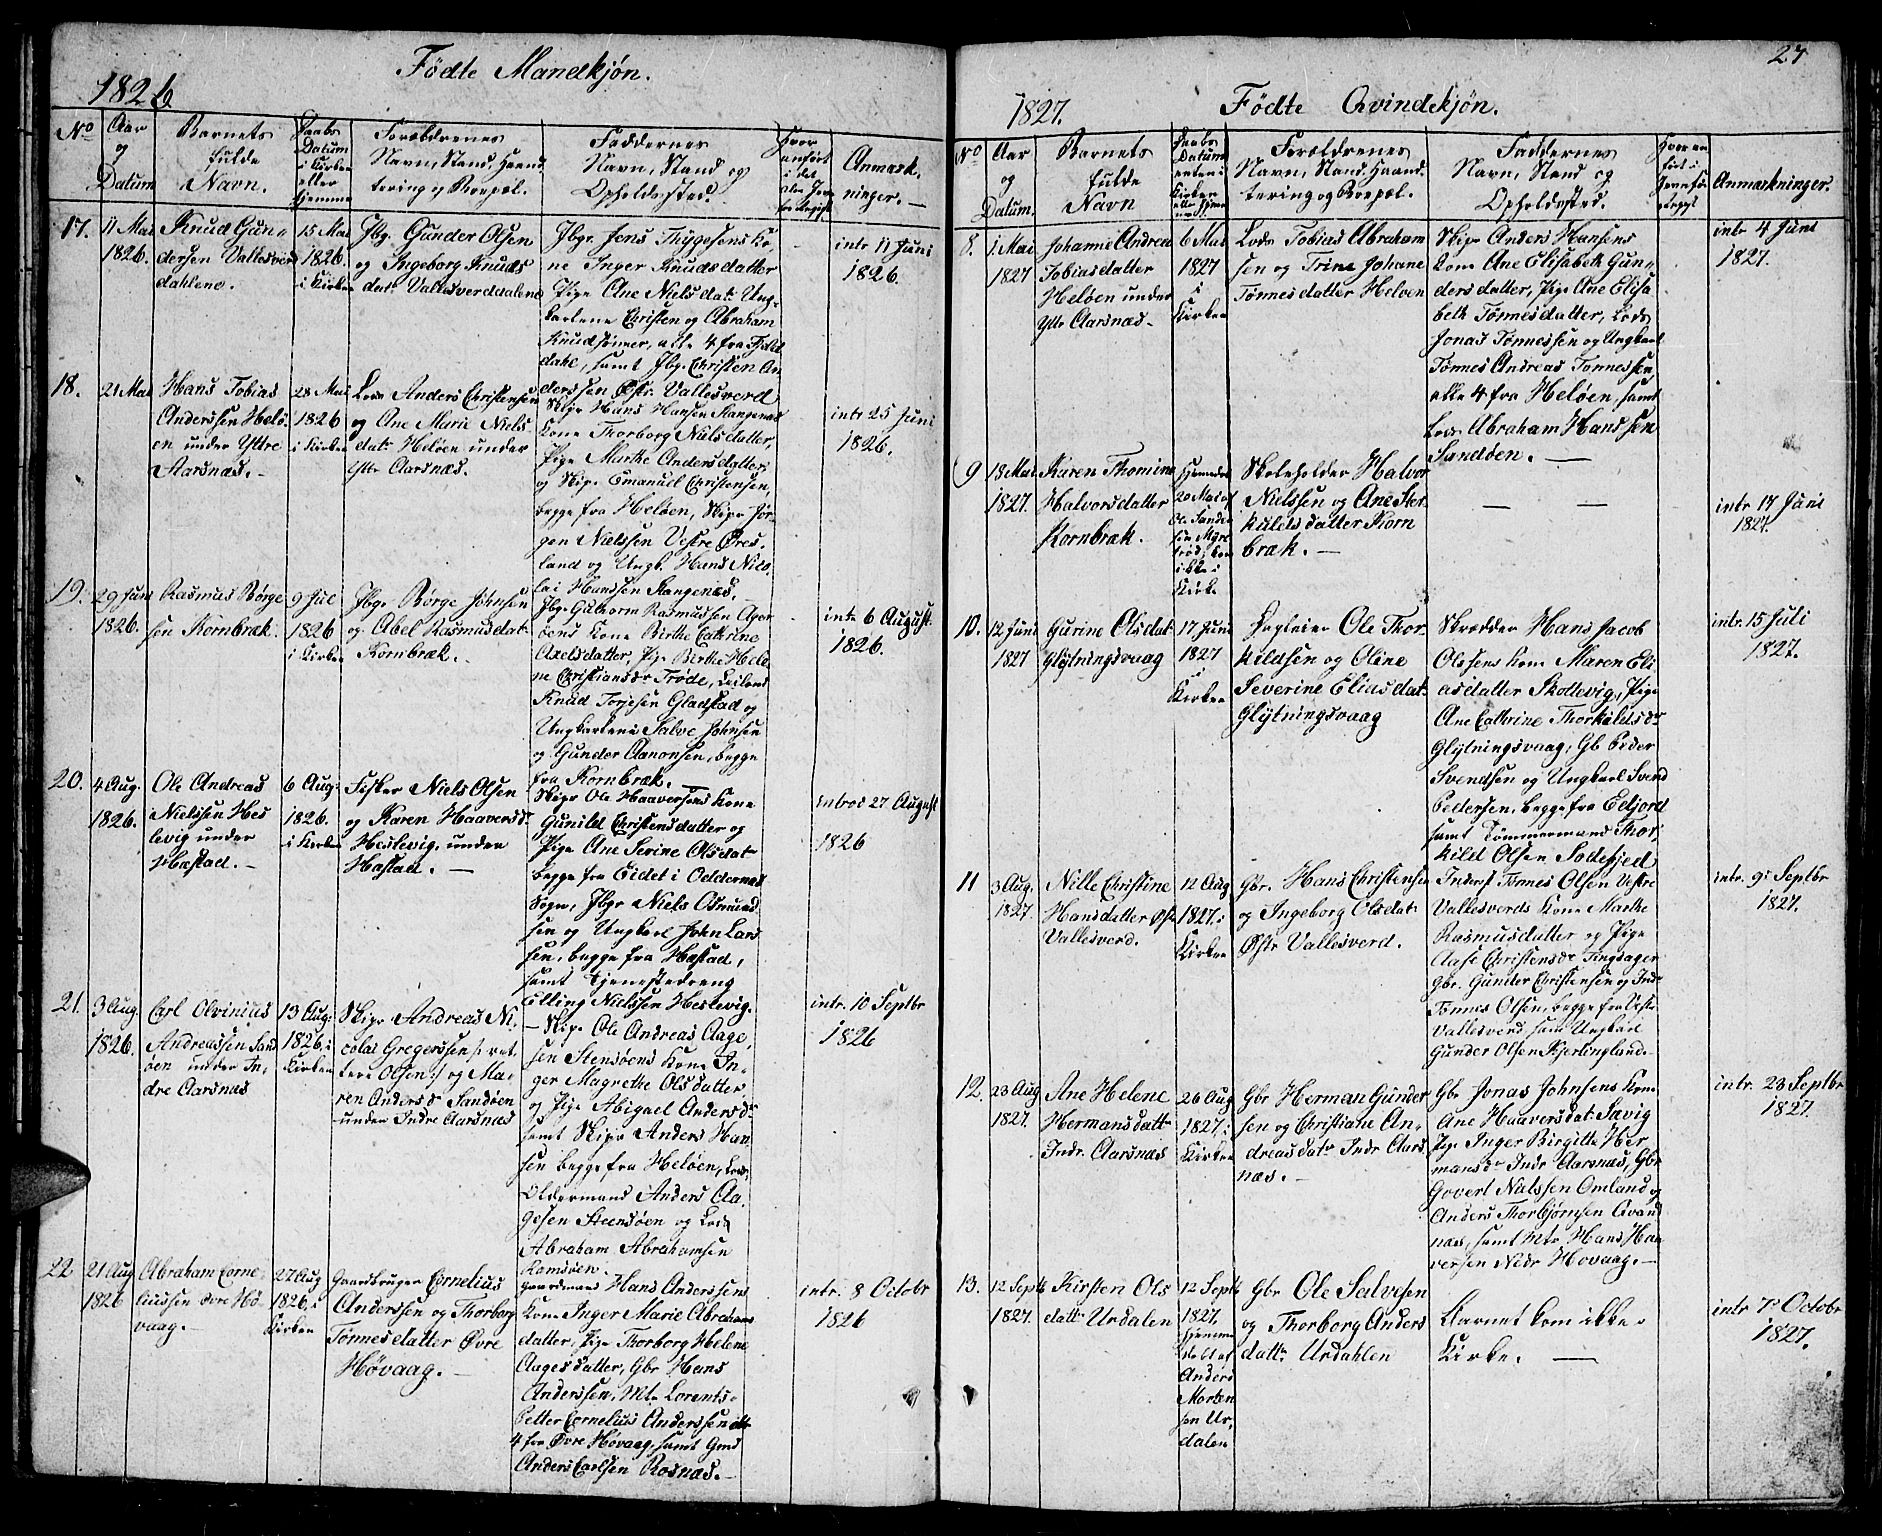 1826
Fødte Mandkjøn.
No
Aar
og
Datum
Barnets
fulde
Navn.
Daabs
Datum
i Kirken
eller
hjemme
Forældrenes
Navn, Stand, Haand
tering og Boepæl.
Faddernes
Navn, Stand og
Opholdssted.
Hvor
anført
i det
Anmærk
ninger.
17.
11 Mai
1826.
Knud Gun-
dersen Vallesverd
dahlene.
15 Mai
1826
i Kirken
Jbgr. Gunder Olsen
og Ingeborg Knuds
datr Vallesverdalene
Jbgr. Jens Thygesens Ko
ne Inger Knudsdatter
Pige Ane Nielsdatr Ung-
karlene Christen og Abraham
Knudsønner, alle 4 fra Fjeld
dahl, samt Jbgr. Christen An
derssen Østr. Vallesverd
intr 11 Juni
1826.
18.
21 Mai
Hans Tobias
Anderssen Helø-
en under Yttre
Aarsnæs.
28 Mai
1826
i Kirken
Lods Anders Christensen
og Ane Marie Niels
datr Heløen under
Yttr Aarsnæs.
Skipr Hans Hansen Stangenæs
Kone Thorborg Nielsdatter,
Pige Marthe Andersdatter
og Skipr Emanuel Christensen,
begge fra Heløen, Skipr Jør-
gen Nielssen Vestre Øres-
land og Ungk. Hans Nico-
lai Hanssen Stangenæs.
intr 25 Juni
1826.
19.
29 Juni
1826.
Rasmus Børge
sen Kornbræk.
9 Jul
1826
i Kirken
Jbgr Børge Johnsen
og Abel Rasmusdatr
Kornbræk.
Jbgr Guthorm Rasmussen Ager
øens Kone Birthe Cathrine
Axelsdatter, Pige Birthe Hele
ne Christiansdr Trøde, Leilend
Knud Torjesen Gladstad og
Ungkarlene Salve Johnsen
og Gunder Aanonsen, begge
fra Kornbræk.
intr 6 August
1826.
20.
4 Aug.
1826.
Ole Andreas
Nielssen Hes
levig under
Hæstad.
6 Aug:
1826.
i Kirken
Fisker Niels Olsen
og Karen Haaversdr
Heslevig, under
Hæstad.
Skipr Ole Haaversens Kone
Gunild Christensdatter og
Pige Ane Serine Olsdatr
begge fra Eidet i Oddernæs
Sogn, Jbgr Niels Osmund
sen og Ungkarl John Lars
sen, begge fra Hæstad,
samt Tjenestedreng
Elling Nielssen Heslevig.
introd 27 August
1826
21.
3 Aug
1826.
Carl Olvinius
Andreassen Sand
øen under In-
dre Aarsnæs
13 Aug:
1826. i
Kirken
Skipr Andreas Ni-
colai Gregerssen /: ret-
tere Olsen :/ og Ma-
ren Andersdr Sandøen
under Indre Aarsnæs
Skipr Ole Andreas Aage-
sen Stensøens Kone In-
ger Magrethe Olsdatter
og Pige Abigael Andersdr
samt Skipr Anders Han-
sen begge fra Heløen, Lods
Oldermand Anders Aa-
gesen Steensøen og Lods
Abraham Abrahamsen
Ramsøen.
intr. 10 Septbr
1826
22
21 Aug
1826
Abraham Corne-
liussen Øvre Hø-
vaag.
27 Aug
1826, i
Kirken
Gaardbruger Cornelius
Anderssen og Thorborg
Tønnesdatter Øvre
Høvaag.
Gaardmand Hans Anderssens
Kone Inger Marie Abrahams
datter, Pige Thorborg Helene
Aagesdatter, Gbr Hans
Anderssen, Mtr. Lorents-
Petter Cornelius Anderssen alle
4 fra Øvre Høvaag, samt Gmd
Anders Carlsen Rosnæs.
intr. 8 Octobr
1826
27
1827.
Fødte Qvindekjøn.
No
Aar
og
Datum.
Barnets
fulde
Navn
Daabs
Datum
enten i
Kirken
eller hjem
Forældrenes
Navn, Stand, Haand
tering og Boepæl.
Faddernes
Navn, Stand og
Opholdssted.
Anmærkninger.
8.
1. Mai
1827
Johanne Andrea
Tobiasdatter
Heløen under
Yttr Aarsnæs.
6 Mai
1827
i
Kirken
Lods Tobias Abraham
sen og Trine Johane
Tønnesdatter Heløen
Skipr Anders Hansens
Kone Ane Elisabeth Gun-
dersdatter, Pige Ane Elisa
beth Tønnesdatter, Lods
Jonas Tønnessen og Ungkarl
Tønnes Andreas Tønnessen
alle 4 fra Heløen, samt
Lods Abraham Hanssen
Sandøen.
intr 4 Juni
1827.
9
18 Mai
1827.
Karen Thomine
Halvorsdatter
Kornbræk.
hjemmedøbt
20 Mai af
Ole Sande
sen Myre
kom
ikke i
Kirke
Skoleholder Halvor
Nielssen og Ane Ter
kildsdatter Korn
bræk.
intr 17 Juni
1827.
10.
12 Juni
1827
Gurine Olsdatr
Glytningsvaag
17 Juni
1827
i
Kirken
Ole Thor-
kildsen og Oline
Severine Eliasdatr
Glytningsvaag
Skrædder Hans Jacob
Olssens kone Maren Eli
asdatter Skottevig, Pige
Ane Cathrine Thorkildsdr
Glytningsvaag, Gb Peder
Svendsen og Ungkarl Svend
Pedersen, begge fra Edjord
samt Tømmermand Thor-
kild Olsen Sodefjed
intr. 15 Juli
1827.
11
3 Aug.
1827.
Nille Christine
Hansdatter Østr
Vallesverd.
12 Aug
1827. i
Kirken
Gbr. Hans Christensen
og Ingeborg Olsdatr
Østr Vallesverd.
Inderst Tønnes Olsen Vestre
Vallesverds Kone Marthe
Rasmusdatter og Pige
Aase Christensdr Tingsager
Gbr. Gunder Christensen og Indr
Tønnes Olsen, begge fra Vestr
Vallesverd, samt Ungkarl
Gunder Olsen Kjerlingland.
intr. 9 Septbr
1827.
12
23 Aug
1827.
Ane Helene
Hermansdattr
Indr. Aarsnæs
26 Aug
1827. i
Kirken
Gbr Herman Gunder
sen og Christiane An-
dreasdatr Indr Aars
næs.
Gbr Jonas Johnsens Kone
Ane Haaversdatr Sævig
Pige Inger Birgitte Her
mansdr Indr Aarsnæs, Gbr
Govert Nielssen Omland og
Anders Thorbjørnsen Qvand
næs, samt Mtr Hans Haa
versen Nedr Høvaag.
intr. 23 Septbr
1827.
13.
12 Septb
1827.
Kirsten Ols
dattr Urdalen
12 Septb
1827,
hjemme
døbt af
Anders
Morten
sen Ur-
dalen
Gbr Ole Salvesen
og Thorborg Anders
dattr Urdahlen
Barnet kom ikke
Kirke.
intr 7 Octobr
1827.